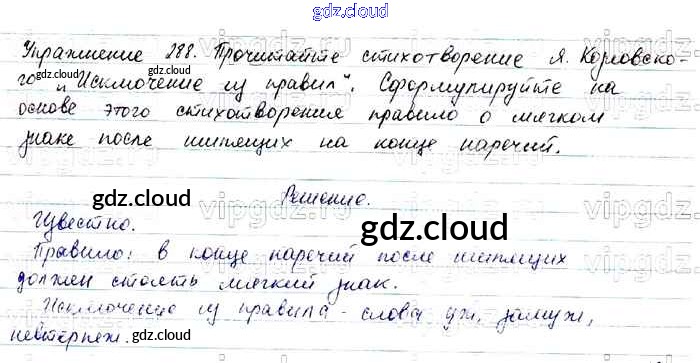 gdz.cloud
Упражнение 288. Прочитайте стихотворение Я. Козловско-
го „Исключение из правил". Сформулируйте на
gdz.cloud
gdz.cloud
основе этого стихотворения правило о мягком
знаке после шипящих на конце наречий.
gdz.cloud
Решение.
gdz.cloud
Известно.
gdz.cloud
Правило: в конце наречий после шипящих
должен стоять мягкий знак.
Исключение из правила - слова уж, замуж,
невтерпеж.
gdz.cloud
gdz.cloud